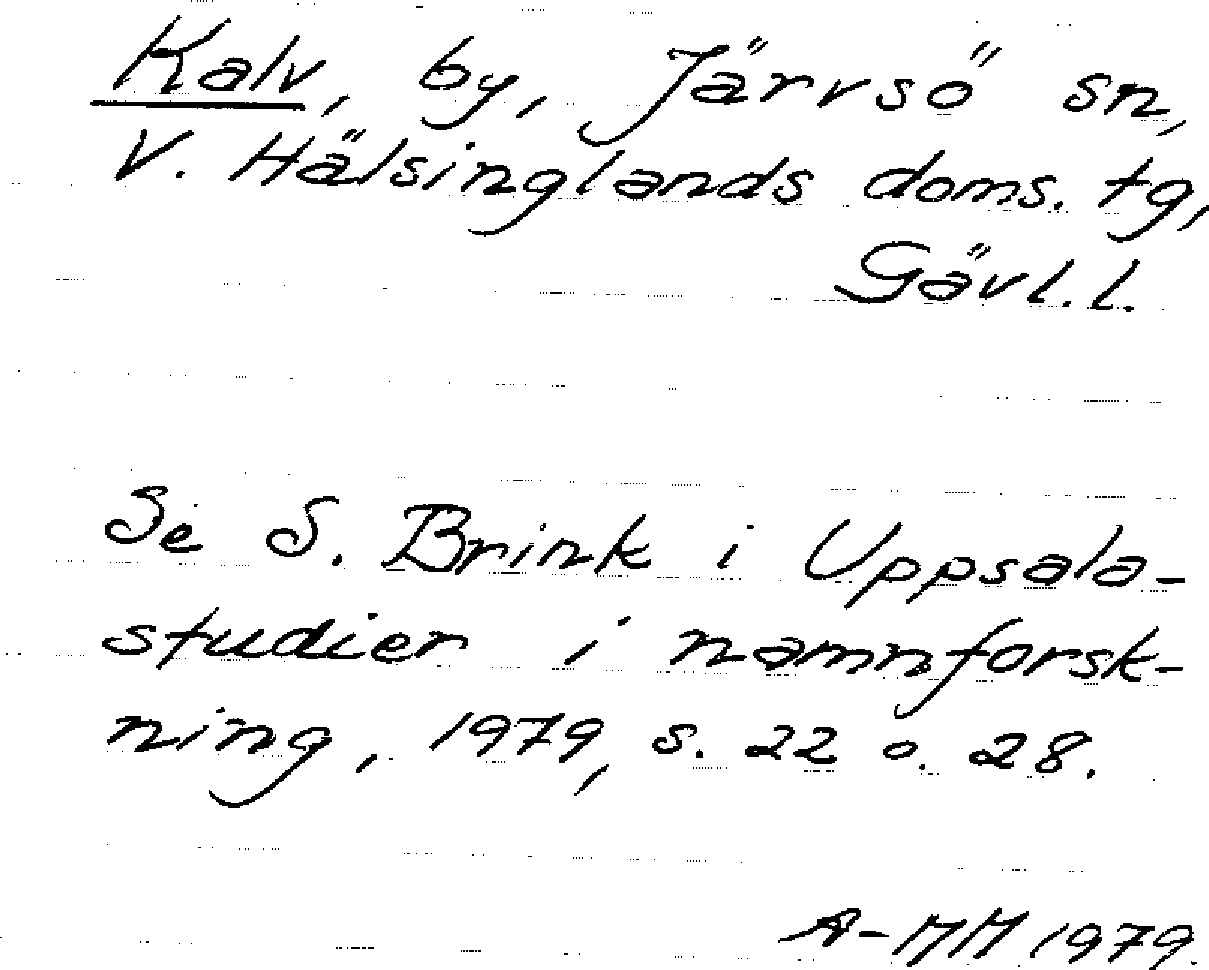 Kalv, by, Järvsö sn,
V. Hälsinglands doms. tg,
Gävl. l.
Se S. Brink i Uppsala-
studier i namnforsk-
ning, 1979, s. 22 o. 28.
A-MM 1979.